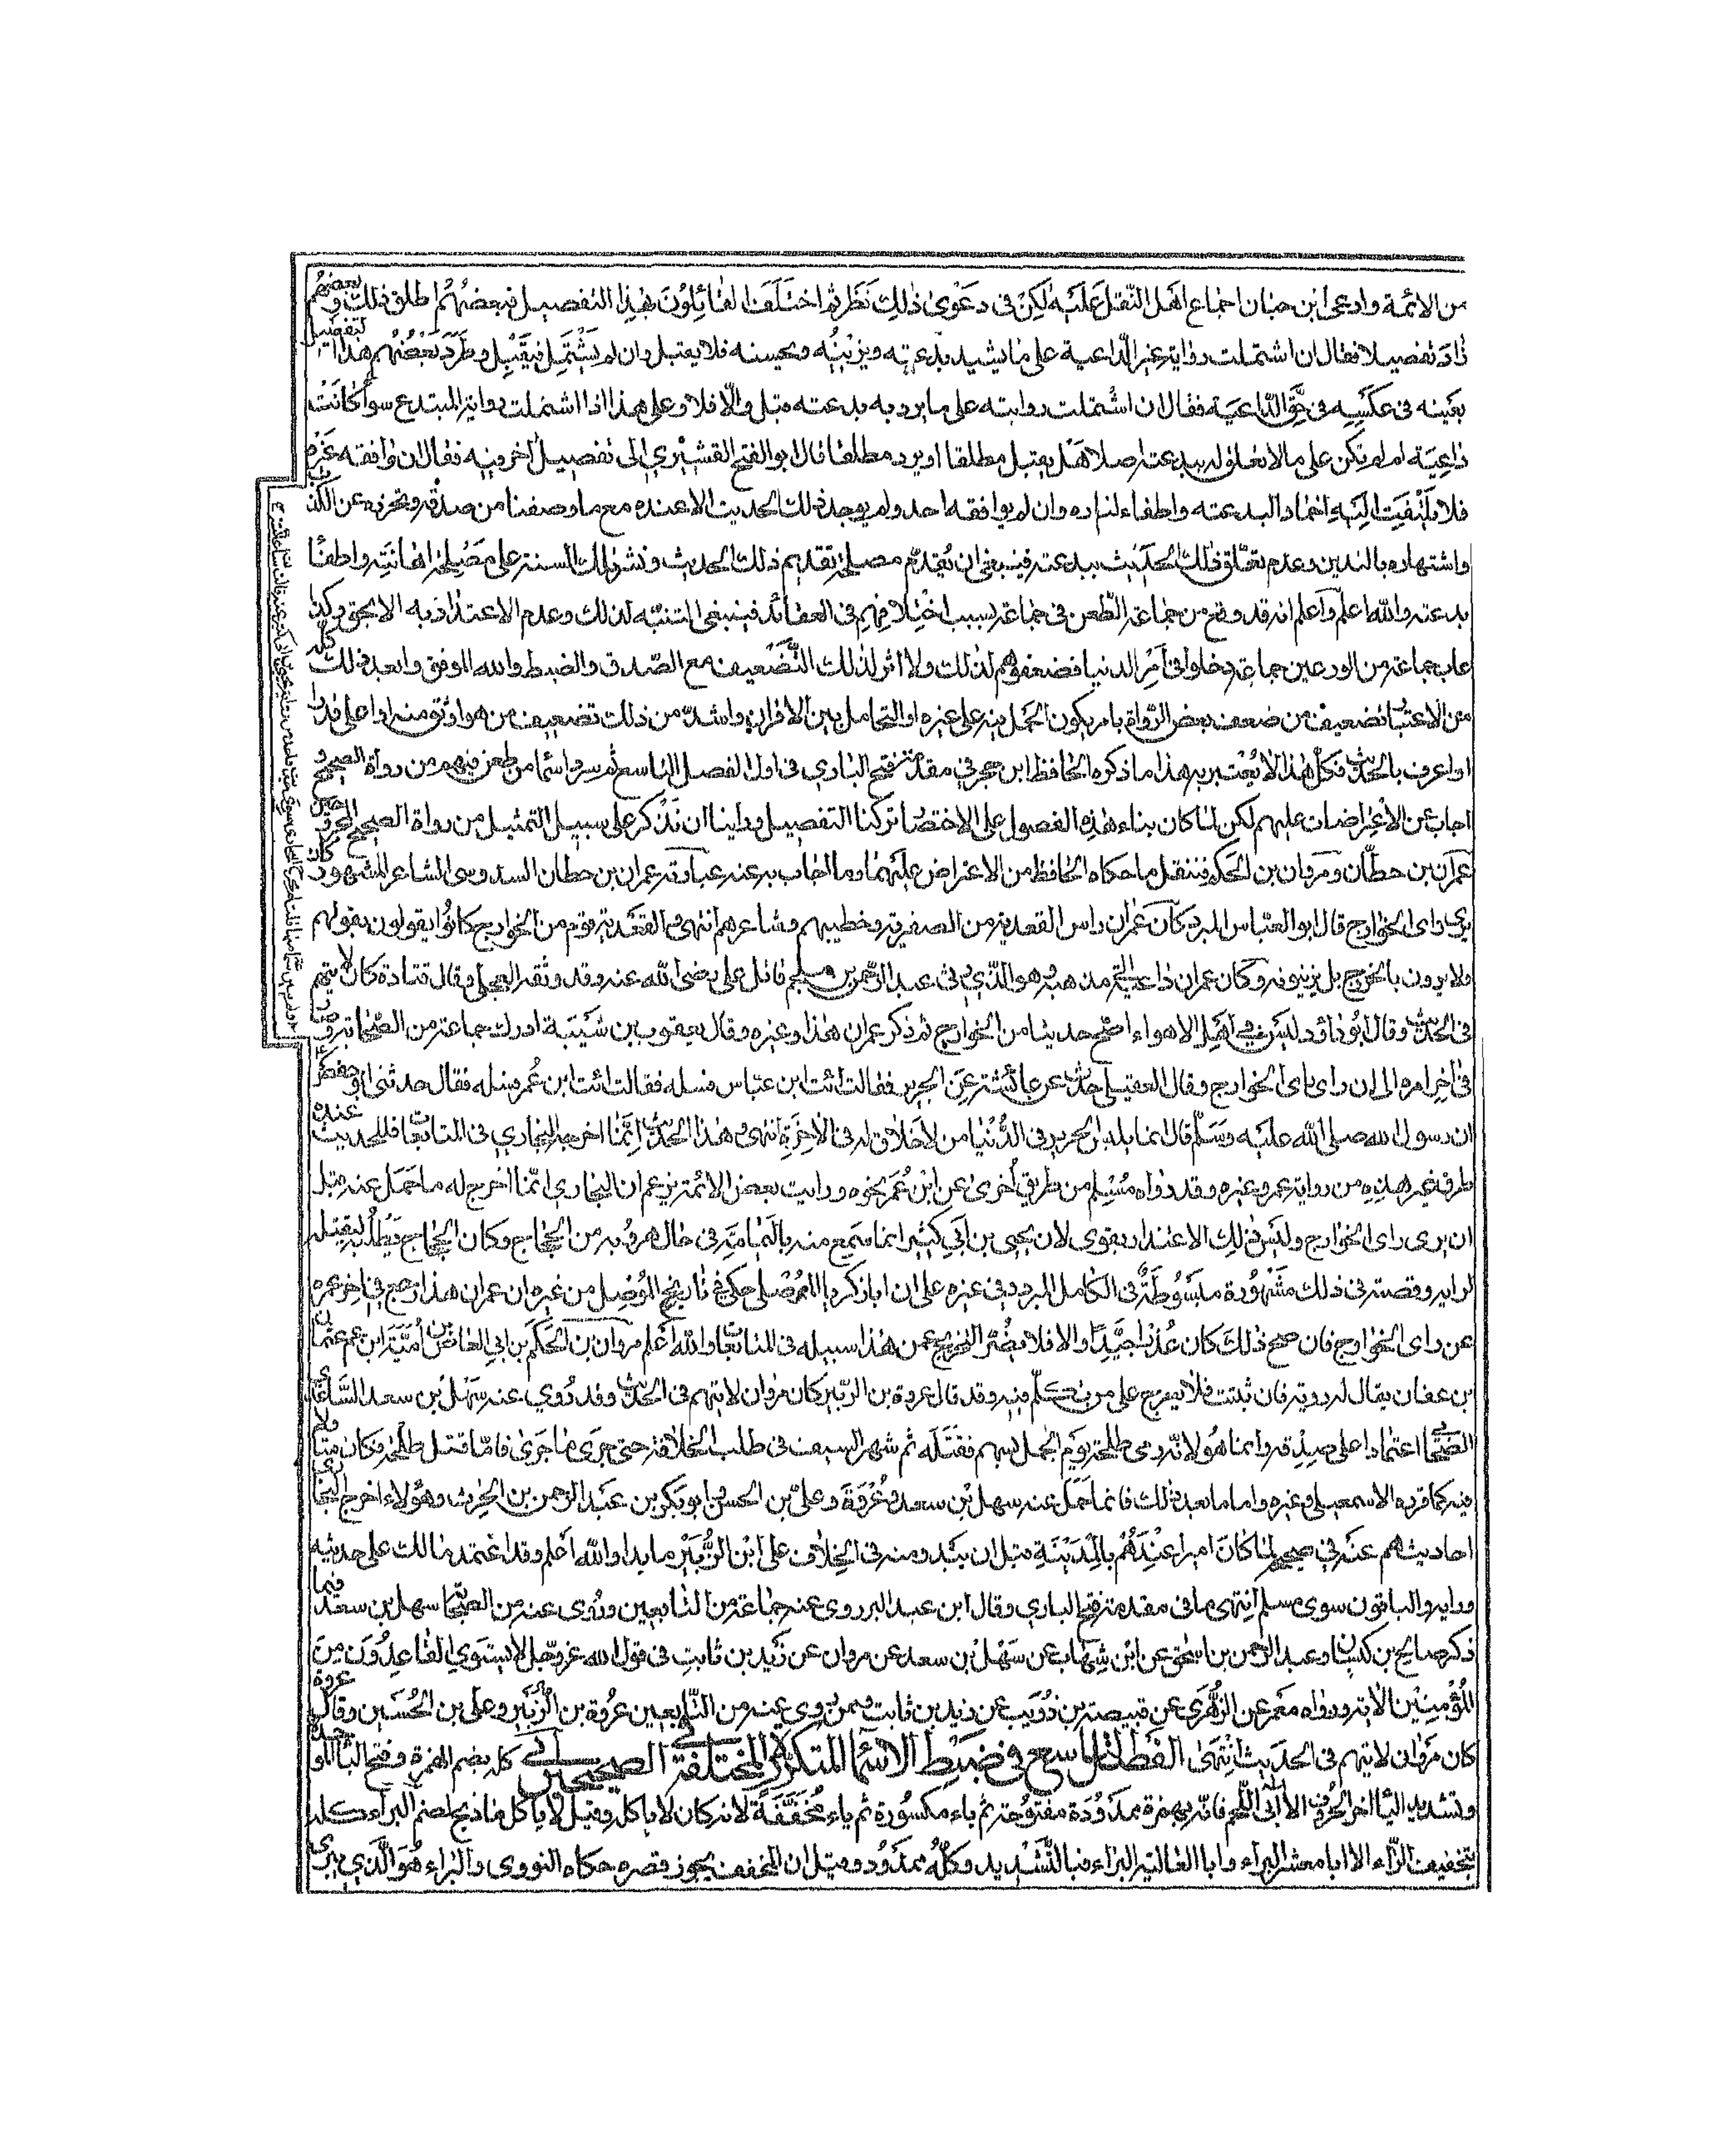 من الائمة وادعى ابن حبان اجماع اهل النقل عَلَيْه لكن في دعوى ذلك نظر ثم اختلف القائلون بهذا التفصيل فبعضهم اطلق ذلك وبعضهم
زاد تفصيلا فقال ان اشتملت رواية غير الداعية على ما يشيد بدعته ويزينه ويحسنه فلا يقبل وان لم يشتمل فيقبل وطرد بعضهم هذا التفصيل
بعينه في عكسه في حق الداعية فقال ان اشتملت روايته على ما يرد به بدعته قبل والا فلا وعلى هذا اذا اشتملت رواية المبتدع سواء كانت
داعية ام لم تكن على ما لا تعلق له ببدعته اصلا هل يقبل مطلقا او يرد مطلقا قال ابو الفتح القشيري الى تفصيل اخر فيه فقال ان وافقه غيره
فلا يلتفت اليه اخمادا لبدعته واطفاء لناره وان لم يوافقه احد ولم يوجد ذلك الحديث الا عنده مع ما وصفنا من صدقه وتحرزه عن الكذب
واشتهاره بالتدين وعدم تعلق ذلك الحديث ببدعته فينبغي ان تقدم مصلحة تقديم ذلك الحديث ونشر تلك السنة على مصلحة اهانته واطفاء
بدعته والله اعلم واعلم انه قد وقع من جماعة الطعن في جماعة بسبب اختلافهم في العقائد فينبغي التنبه لذلك وعدم الاعتداد به الا بحق وكذا
عاب جماعة من الورعين جماعة دخلوا في امر الدنيا فضعفوهم لذلك ولا اثر لذلك التضعيف مع الصدق والضبط والله الموفق وابعد ذلك كله
من الاعتبار تضعيف من ضعف بعض الرواة بامر يكون الحمل فيه على غيره او التحامل بين الاقران واشد من ذلك تضعيف من هو اوثق منه او اعلى قدرا
او اعرف بالحديث فكل هذا لا يعتبر به هذا ما ذكره الحافظ ابن حجر في مقدمة فتح الباري في اول الفصل التاسع ثم سرد اسماء من طعن فيهم من رواة الصحيح و
اجاب عن الاعتراضات عليهم لكن لما كان بناء هذه الفصول على الاختصار تركنا التفصيل وراينا ان نذكر على سبيل التمثيل من رواة الصحيح المجروحين
عمران بن حطان ومروان بن الحكم فننقل ما حكاه الحافظ من الاعتراض عليهما وما اجاب به عنه عبارته عمران بن حطان السدوسي الشاعر المشهور كان
يرى راى الخوارج قال ابو العباس المبرد كان عمران راس القعدية من الصفرية وخطيبهم وشاعرهم انتهى والقعدية قوم من الخوارج كانوا يقولون بقولهم
ولا يرون بالخروج بل يزينونه وكان عمران داعية الى مذهبه وهو الذي رثى عبد الرحمن بن ملجم قاتل علي رضى الله عنه وقد وثقه العجلي وقال قتادة كان لا يتهم
في الحديث وقال ابو داؤد ليس في اهل الاهواء اصح حديثا من الخوارج ثم ذكر عمران هذا وغيره وقال يعقوب بن شيبة ادرك جماعة من الصحابة وصار
في اخر امره الى ان راى راى الخوارج وقال العقيلي حدث عن عائشة عن الحرير فقالت ائت ابن عباس فسله فقالت ائت ابن عمر فسله فقال حدثني ابو حفص
ان رسول الله صلى الله عليه وسلم قال انما يلبس الحرير في الدنيا من لا خلاق له في الاخرة انتهى وهذا الحديث انما اخرجه البخاري في المتابعات فللحديث عنده
طرق غير هذه من رواية عمر وغيره وقد رواه مسلم من طريق اخرى عن ابن عمر نحوه ورايت بعض الائمة يزعم ان البخاري انما اخرج له ما حمل عنه قبل
ان يرى راى الخوارج وليس ذلك الاعتذار بقوى لان يحيى بن ابي كثير انما سمع منه باليمامة في حال هروبه من الحجاج وكان الحجاج يطلبه ليقتله
لرايه وقصته في ذلك مشهورة مبسوطة في الكامل للمبرد وفي غيره على ان ابا زكريا الموصلي حكى في تاريخ الموصل من غيره ان عمران هذا رجع في اخر عمره
عن راى الخوارج فان صح ذلك كان عذرا جيدا والا فلا يضر التخريج عمن هذا سبيله في المتابعات والله اعلم مروان بن الحكم بن ابي العاص بن امية ابن عم عثمان
بن عفان يقال له روية فان ثبتت فلا يعرج على من تكلم فيه وقد قال عروة بن الزبير كان مروان لا يتهم في الحديث وقد روى عنه سهل بن سعد الساعدي
الصحابي اعتمادا على صدقه وانما هو لانه رمى طلحة يوم الجمل بسهم فقتله ثم شهر السيف في طلب الخلافة حتى جرى ما جرى فاما قتل طلحة فكان متاولا
فيه كما قرره الاسمعيلي وغيره واما ما بعد ذلك فانما حمل عنه سهل بن سعد وعروة وعلي بن الحسين وابو بكر بن عبد الرحمن بن الحرث وهؤلاء اخرج البخاري
احاديثهم عنه في صحيحه لما كان اميرا عندهم بالمدينة قبل ان يبدو منه في الخلاف على ابن الزبير ما بدا والله اعلم وقد اعتمد مالك على حديثه
ورايه والباقون سوى مسلم انتهى ما في مقدمة فتح الباري وقال ابن عبد البر روى عنه جماعة من التابعين وروى عنه من الصحابة سهل بن سعد فيما
ذكر صالح بن كيسان وعبد الرحمن بن اسحق عن ابن شهاب عن سهل بن سعد عن مروان عن زيد بن ثابت في قول الله عز وجل لا يستوي القاعدون من
المؤمنين الاية ورواه معمر عن الزهري عن قبيصة بن ذويب عن زيد بن ثابت وممن روى عنه من التابعين عروة بن الزبير وعلي بن الحسين وقال عروة
كان مروان لا يتهم في الحديث انتهى الفصل التاسع في ضبط الاسماء المتكررة المختلفة في الصحيحين ابي كله بضم الهمزة وفتح الباء الموحدة
وتشديد الياء اخر الحروف الا ابي اللحم فانه بهمزة ممدودة مفتوحة ثم باء مكسورة ثم ياء مخففة لانه كان لا ياكله وقيل لا ياكل ما ذبح للصنم البراء كله
بتخفيف الراء الا ابا معشر البراء وابا العالية البراء فبالتشديد وكله ممدود وقيل ان المخفف يجوز قصره حكاه النووي والبراء هو الذي يبرى